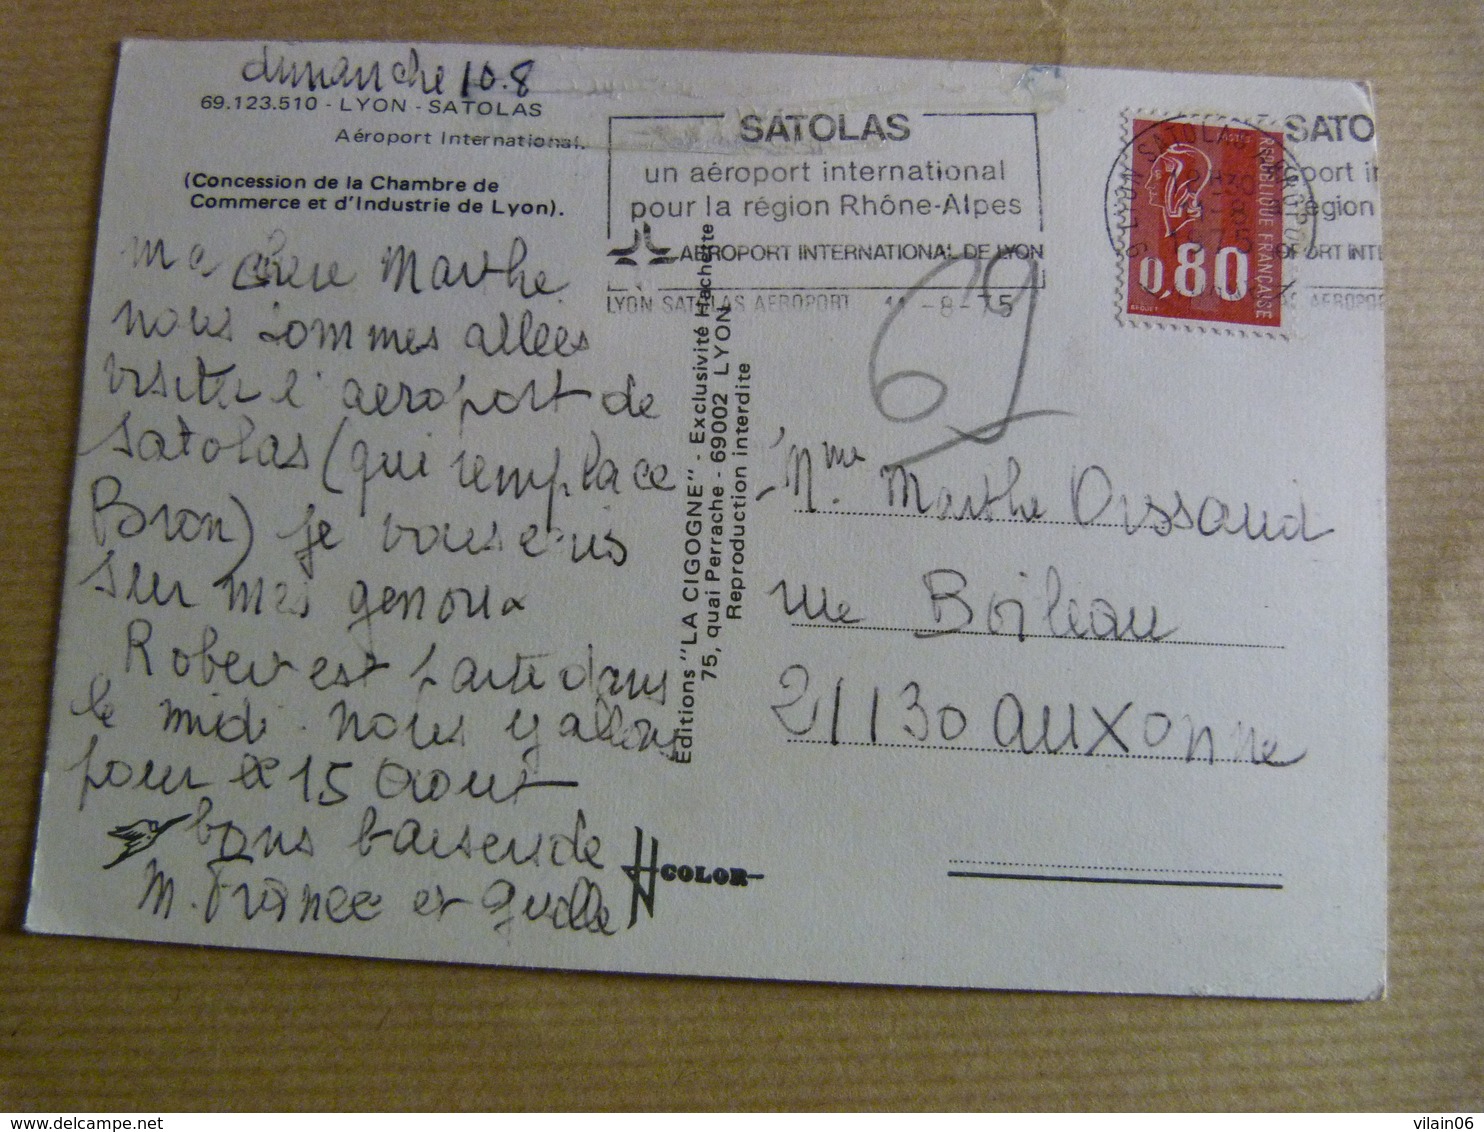 dimanche 10.8
69.123.510 - LYON - SATOLAS
Aéroport International.
(Concession de la Chambre de
Commerce et d'Industrie de Lyon).
ma chère Marthe
nous sommes allées
visiter l'aeroport de
Satolas (qui remplace
Bron) je vous ecris
sur mes genoux
Robert est partie dans
le midi. nous y allons
pour le 15 Aout
bons baisers de
M. France et
COLOR
Editions "LA CIGOGNE" - Exclusivité Hachette
75, quai Perrache - 69002 LYON
Reproduction interdite
SATOLAS
un aéroport international
pour la région Rhône-Alpes
AEROPORT INTERNATIONAL DE LYON
LYON SATOLAS AEROPORT 11-8-75
69
REPUBLIQUE FRANÇAISE
0,80
SATO
région
OPORT INTE
AEROPOR
Mme Marthe Orssaud
rue Boileau
21130 auxonne
vilain06